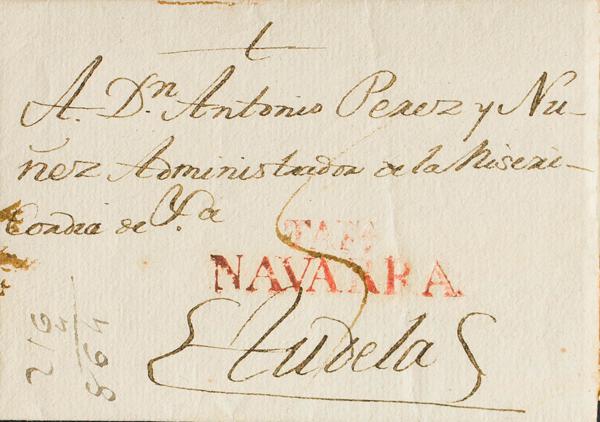 A. Dn. Antonio Perez y Nu-
ñez Administrador de la Miseri-
cordia de
TAFA
NAVARRA
Tudela
216
4
864